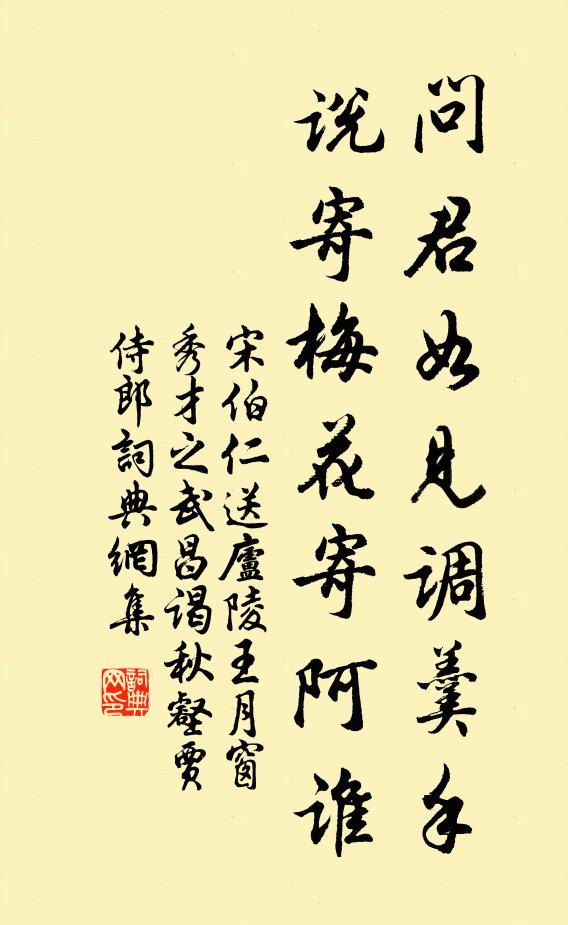 问君如见调羹手
说寄梅花寄阿谁
宋伯仁送廬陵王月窗
秀才之武昌谒秋壑贾
侍郎詞典網集
詞典
网印